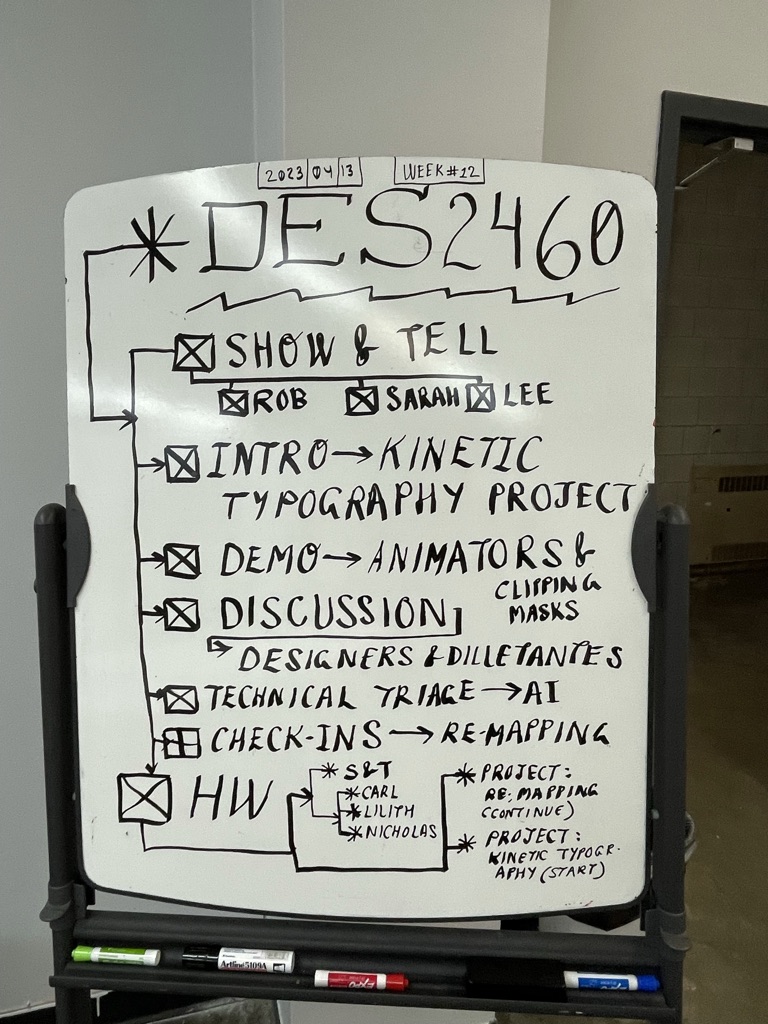 2023 04 13 WEEK #12
* DES2460
SHOW & TELL
ROB SARAH LEE
INTRO → KINETIC
TYPOGRAPHY PROJECT
DEMO → ANIMATORS &
CLIPPING
MASKS
DISCUSSION
DESIGNERS & DILLETANTES
TECHNICAL TRIAGE → AI
CHECK-INS → RE-MAPPING
HW
* S&T
* CARL
* LILITH
* NICHOLAS
* PROJECT:
RE-MAPPING
(CONTINUE)
* PROJECT:
KINETIC TYPOGR-
APHY (START)
Artline 5109A
EXPO